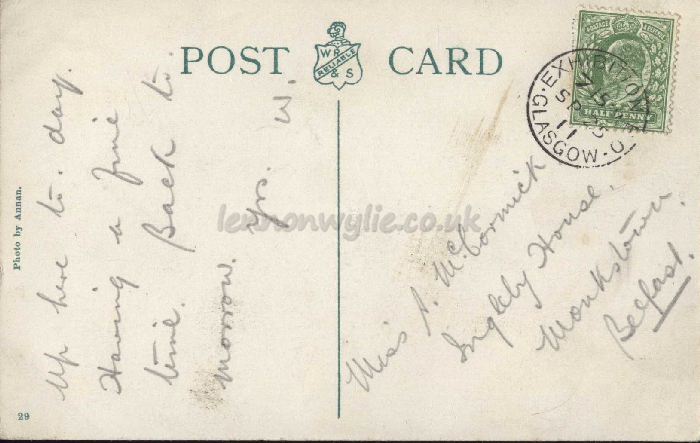 POST CARD
W R
RELIABLE
& S
Photo by Annan.
29
Up here to-day.
Having a fine
time. Back to
morrow. Yrs. W.
Miss A. McCormick
Ingleby House.
Monkstown.
Belfast.
EXHIBITION
GLASGOW
11
HALF PENNY
lennonwylie.co.uk